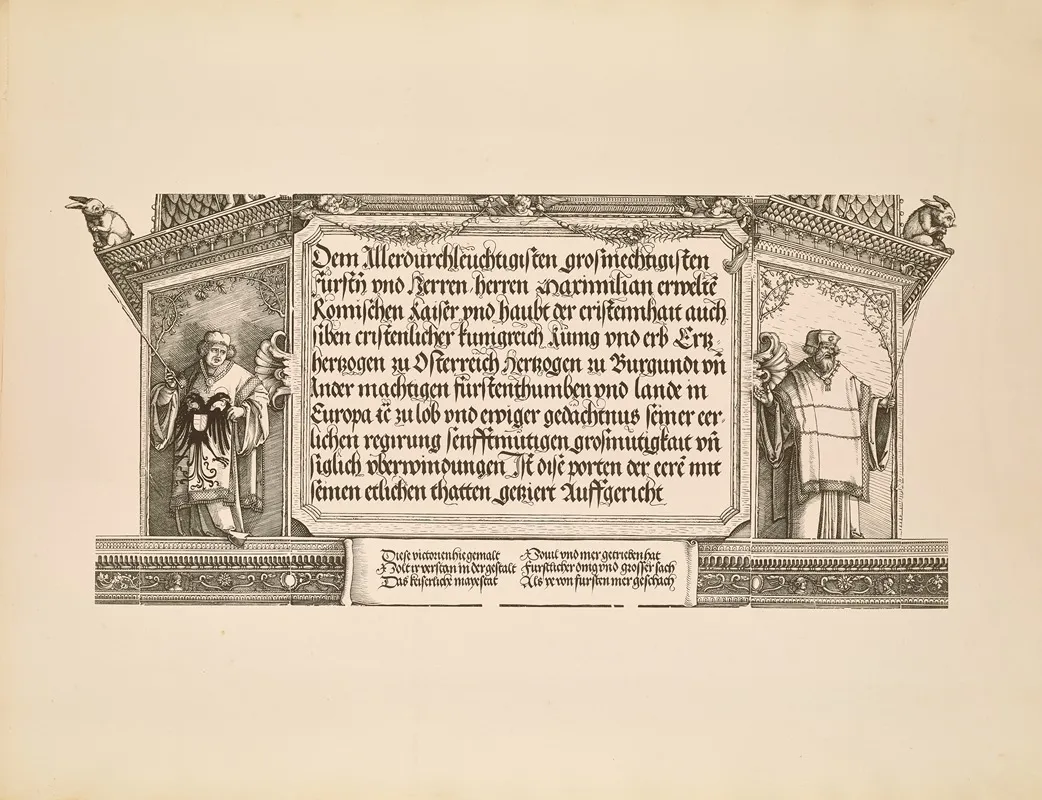 Dem Allerdurchleuchtigisten grosmechtigisten
fürstñ vnd Herren herren Maximilian erweltẽ
Romischen Kaiser vnd haubt der cristennhait auch
siben cristenlicher kunigreich Kunig vnd erb Ertz-
hertzogen zu Osterreich Hertzogen zu Burgundi vñ
Ander machtigen furstenthumben vnd lande in
Europa ꝛc̃ zu lob vnd ewiger gedächtnus seiner eer-
lichen regirung senfftmutigen grosmutigkait vñ
siglich vberwindungen Ist dise porten der eerẽ mit
seinen etlichen thatten getziert Auffgericht
Diese victorien hie gemalt
Solt ir verstan in der gestalt
Das keiserliche mayestat
Souil vnd mer getrieben hat
Furstlicher ding vnd grosser sach
Als ye von fursten mer geschach